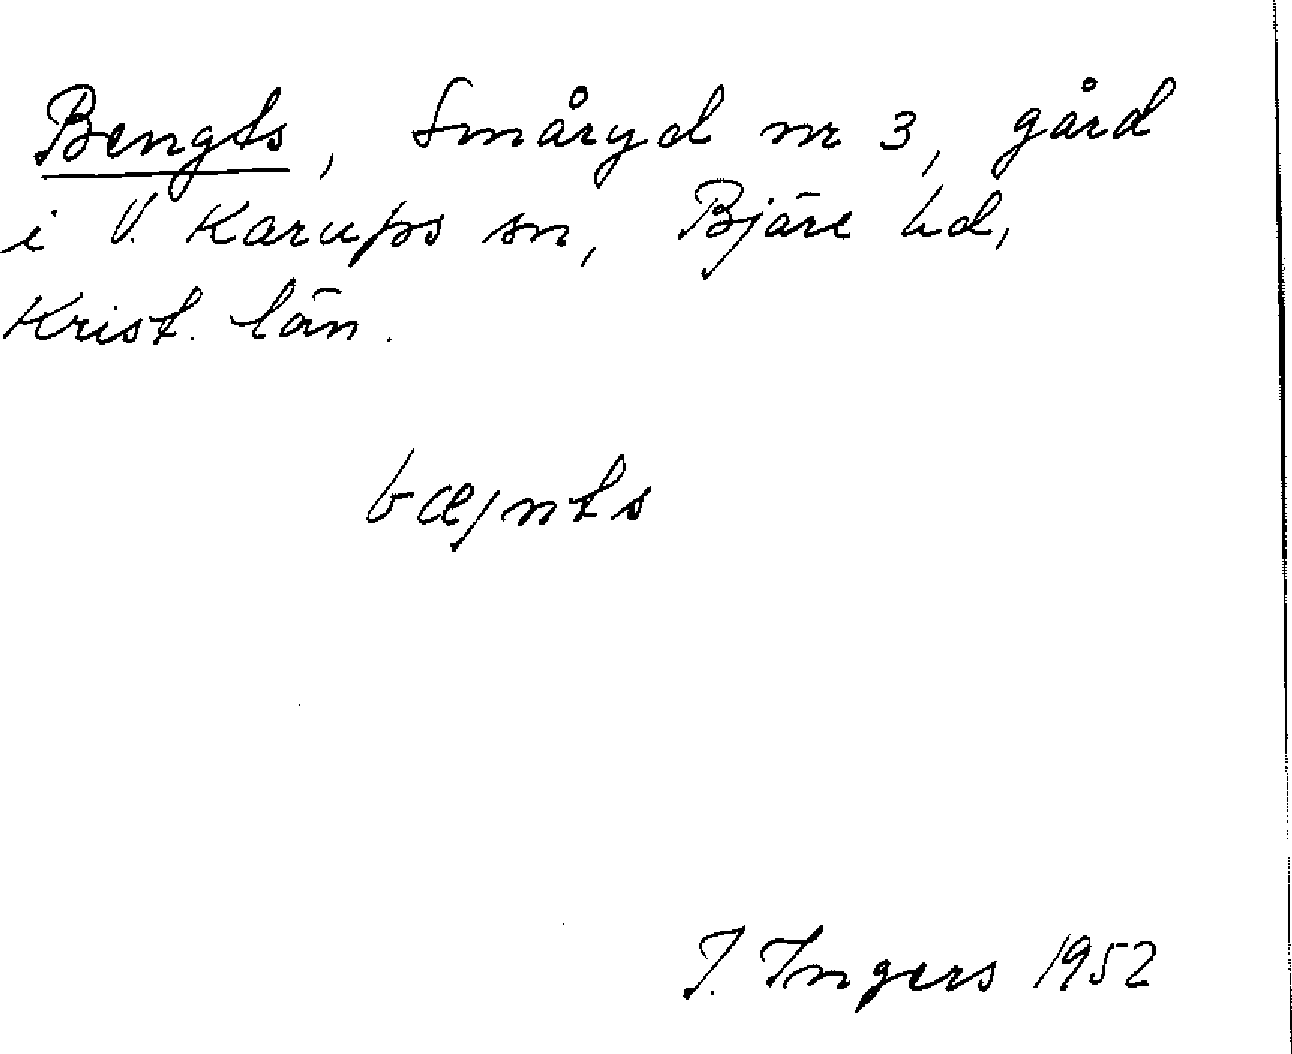 Bengts, Småryd nr 3, gård
i V. Karups sn, Bjäre hd,
Krist. län.
bæjnts
I. Ingers 1952